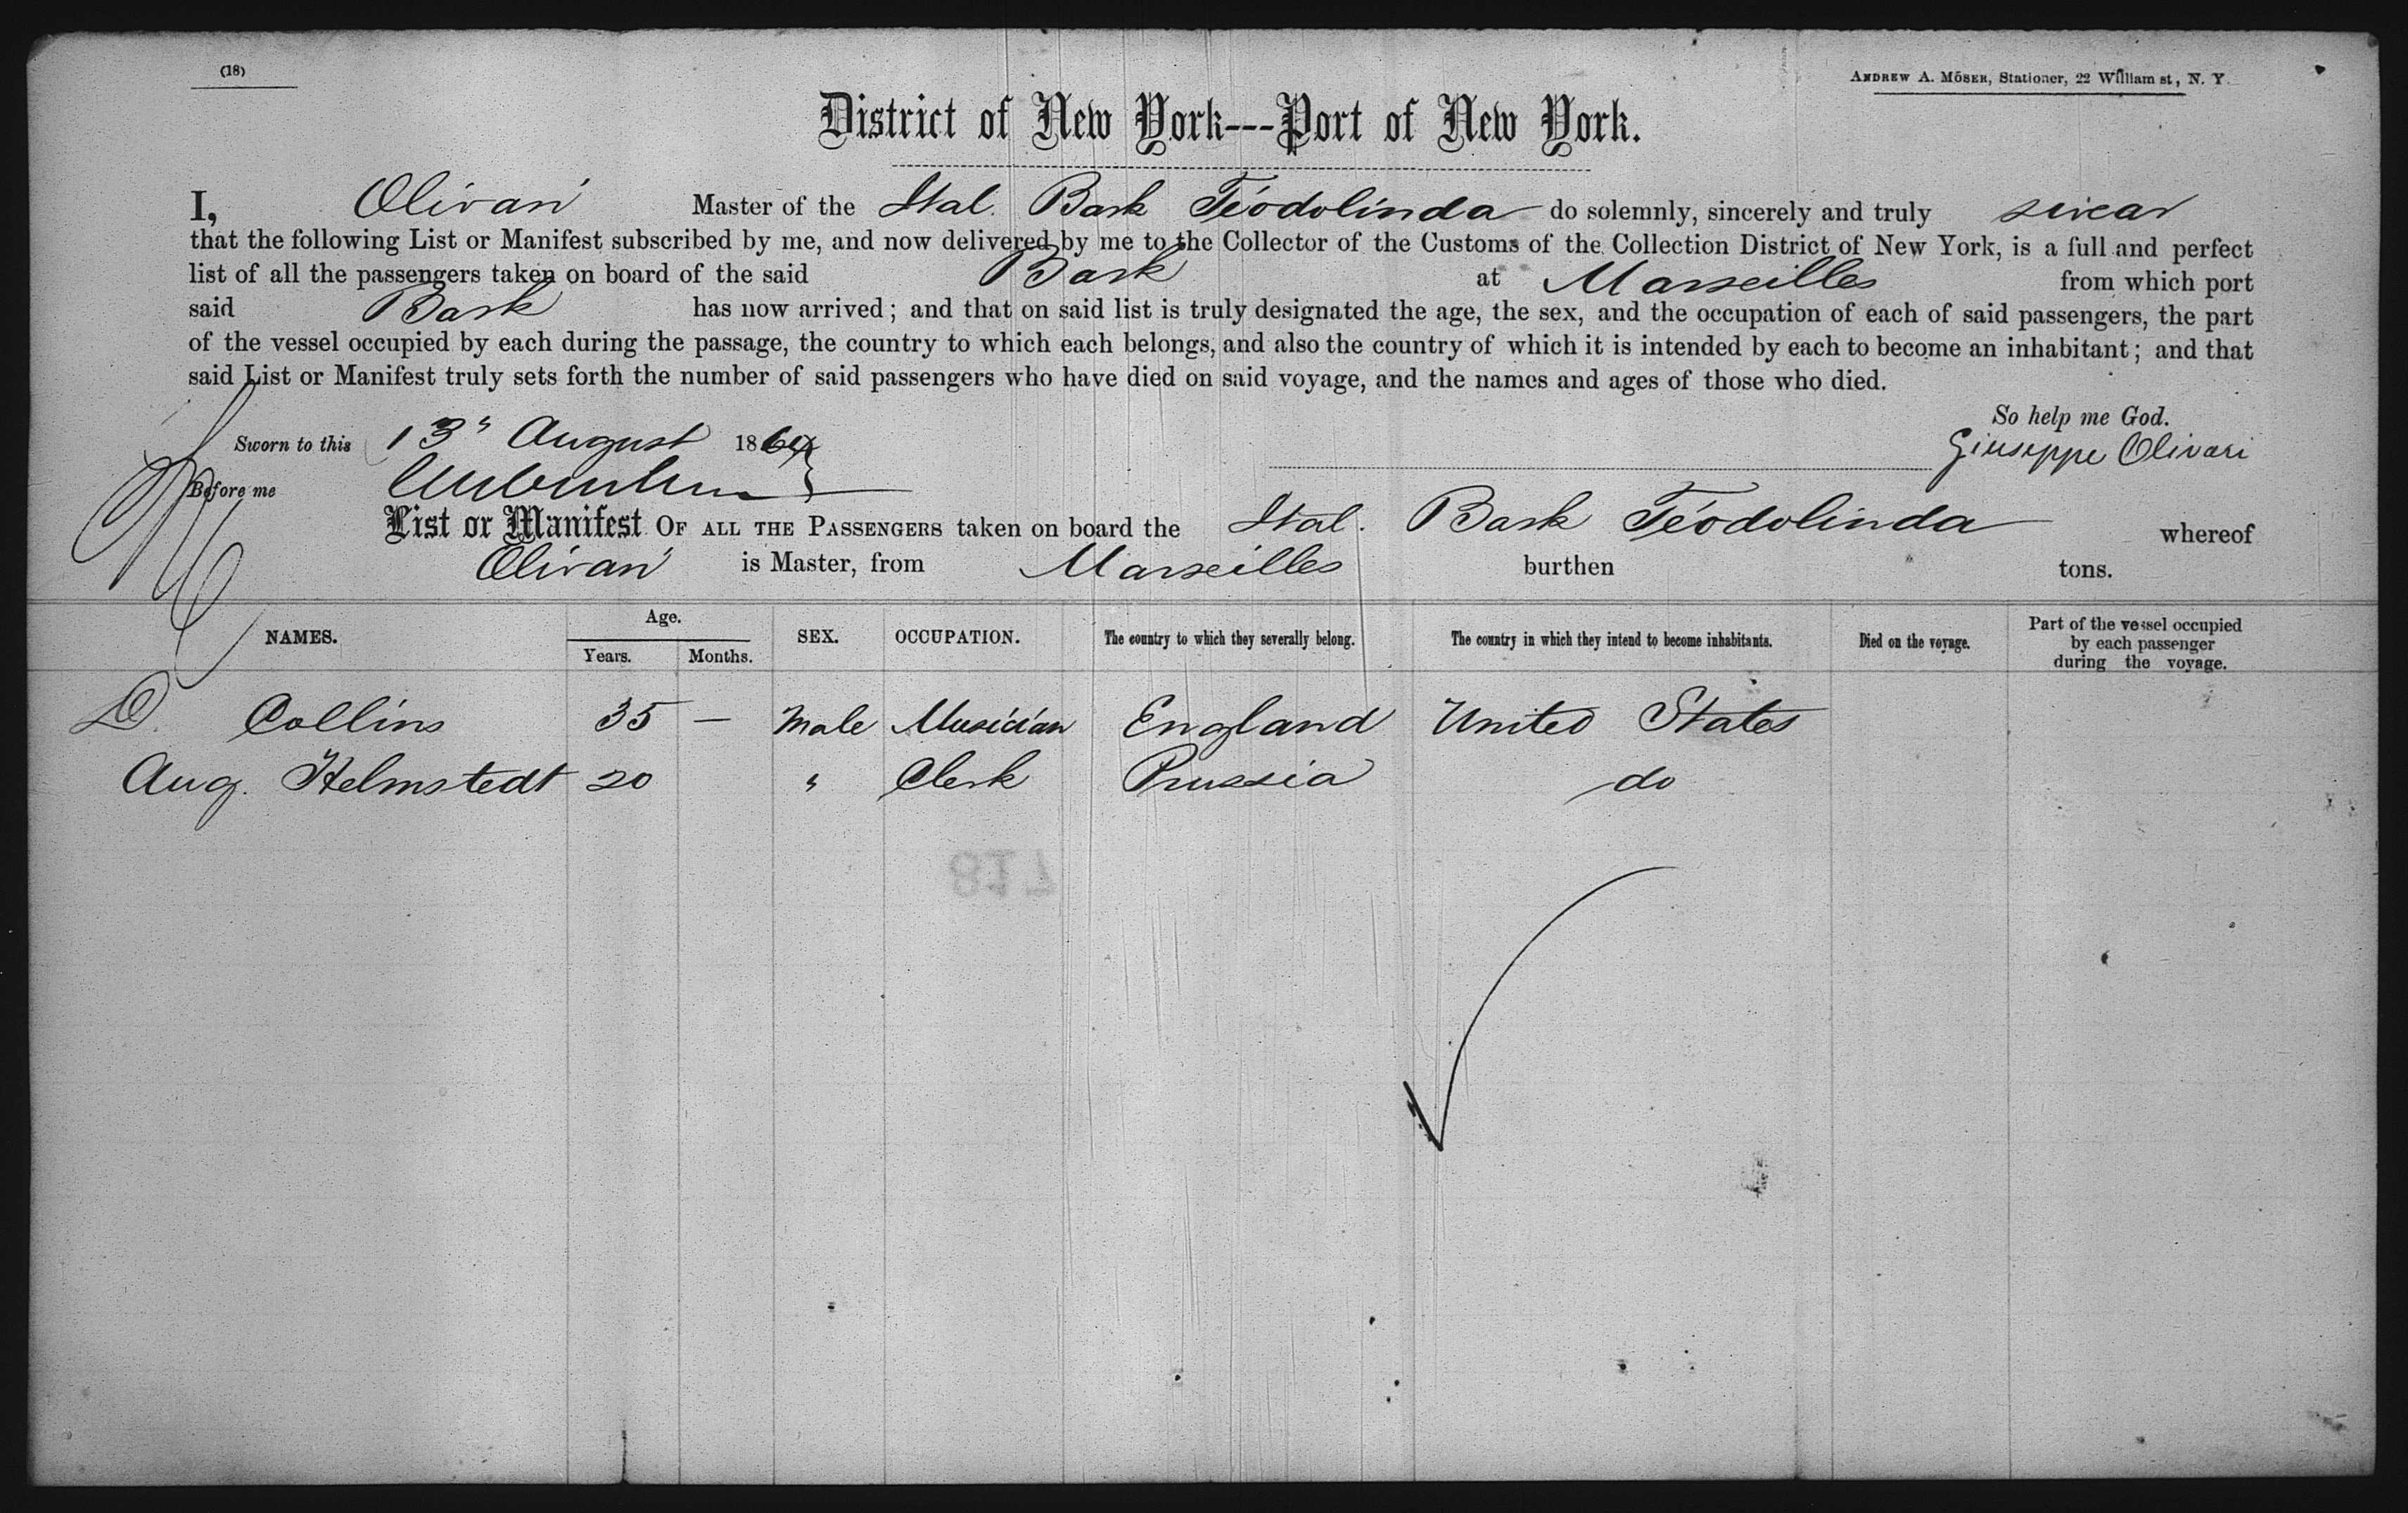 (18)
ANDREW A. MÖSER, Stationer, 22 William st, N. Y.
District of New York---Port of New York.
I, Olivari Master of the Ital. Bark Teodolinda do solemnly, sincerely and truly swear
that the following List or Manifest subscribed by me, and now delivered by me to the Collector of the Customs of the Collection District of New York, is a full and perfect
list of all the passengers taken on board of the said Bark at Marseilles from which port
said Bark has now arrived; and that on said list is truly designated the age, the sex, and the occupation of each of said passengers, the part
of the vessel occupied by each during the passage, the country to which each belongs, and also the country of which it is intended by each to become an inhabitant; and that
said List or Manifest truly sets forth the number of said passengers who have died on said voyage, and the names and ages of those who died.
So help me God.
Sworn to this 13" August 1869
Giuseppe Olivari
Before me
List or Manifest OF ALL THE PASSENGERS taken on board the Ital. Bark Teodolinda whereof
Olivari is Master, from Marseilles burthen tons.
NAMES. Age. Years. Months. SEX. OCCUPATION. The country to which they severally belong. The country in which they intend to become inhabitants. Died on the voyage. Part of the vessel occupied by each passenger during the voyage.
D. Collins 35 — Male Musician England United States
Aug. Helmstedt 20 " Clerk Prussia do
817